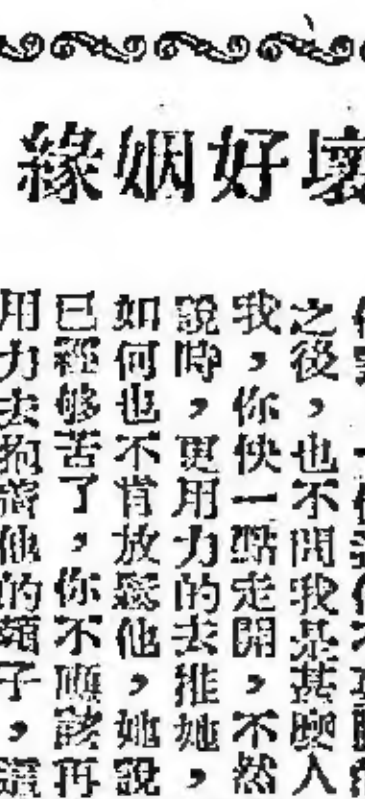 壞好姻緣
之後,也不問我是甚麼人
我,你快一點走開,不然
說時,更用力的去推她,
如何也不肯放鬆他,她說
已經够苦了,你不應該再
用力去抱着他的頸子,